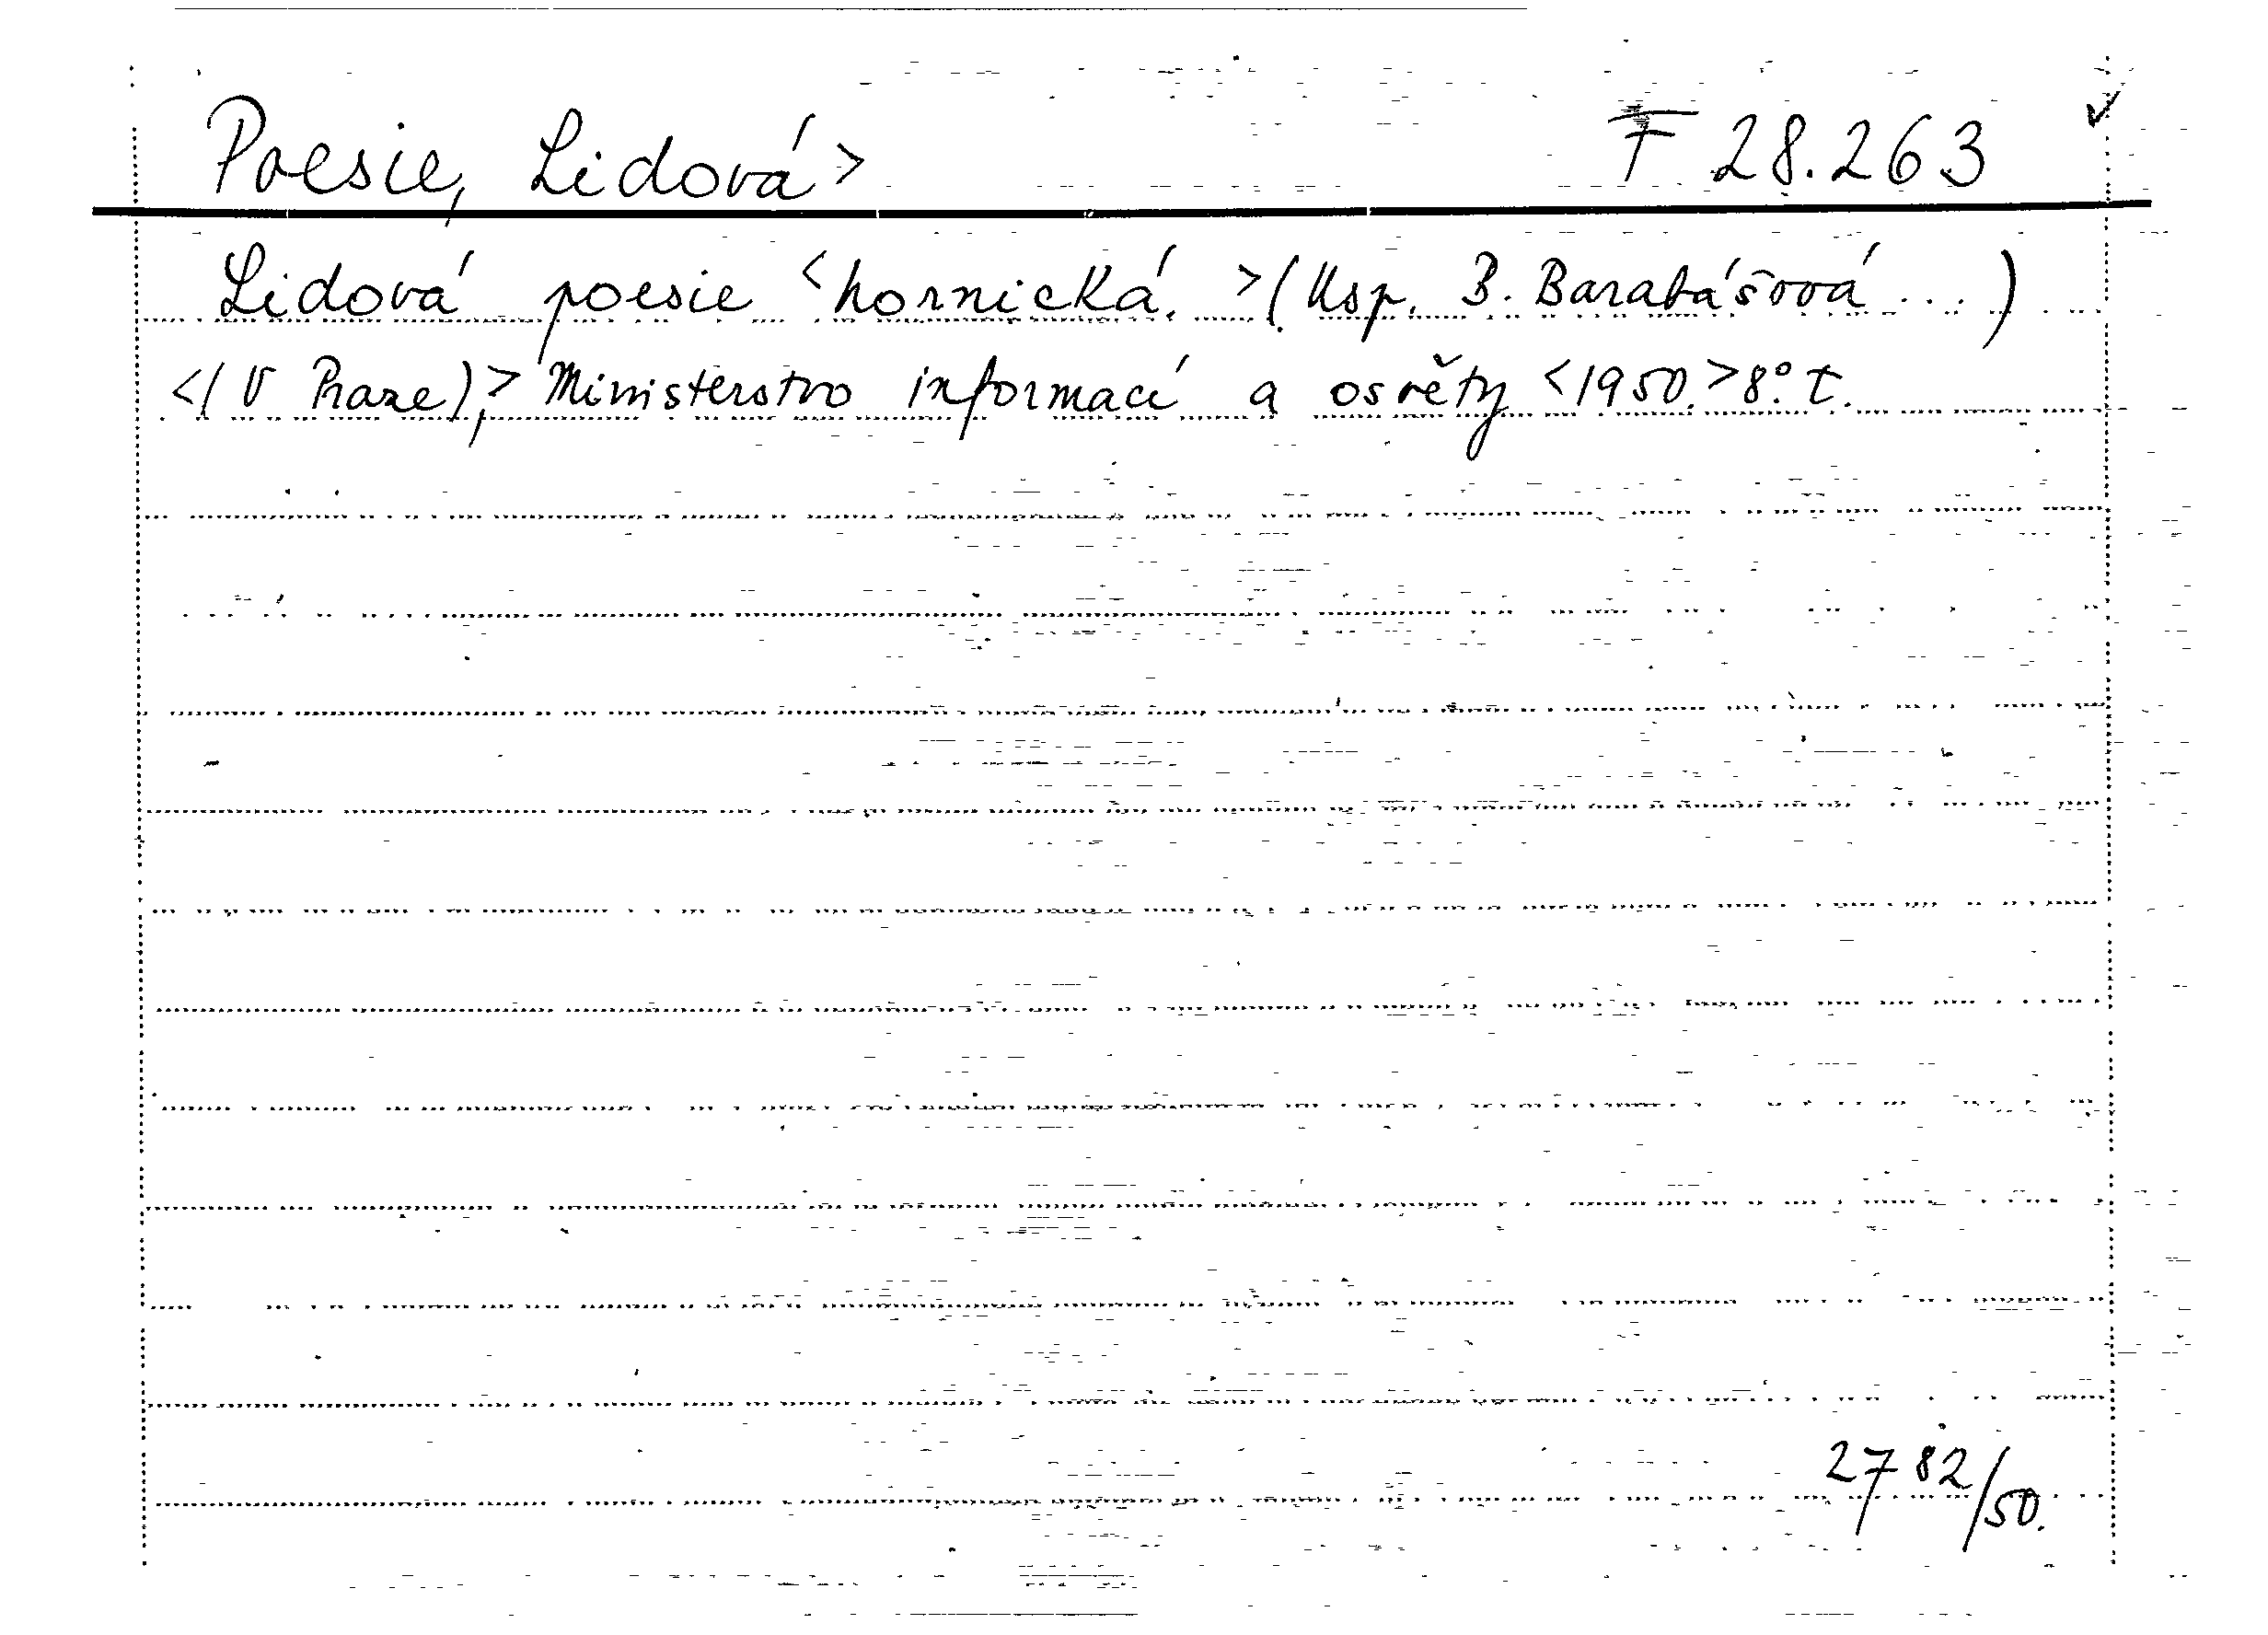 Poesie, Lidová> F 28.263 ✓
Lidová poesie <hornická. >(Usp. B. Barabášová ...)
<(V Praze),> Ministerstvo informací a osvěty <1950.> 8°. t.
2782/50.